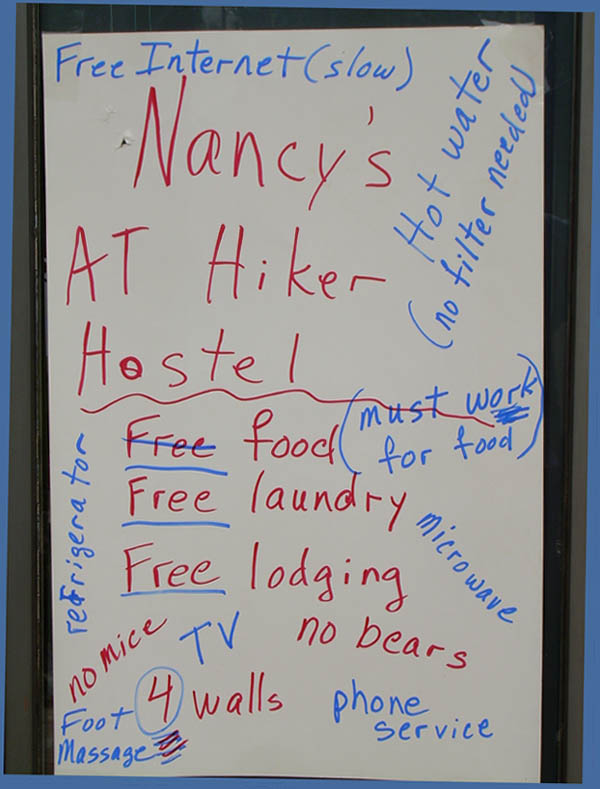 Free Internet (slow)
Nancy's
AT Hiker
Hostel
Hot water
(no filter needed)
Free food (must work
for food)
Free laundry
Free lodging
refrigerator
microwave
no mice
TV
no bears
4 walls
phone
service
Foot
Massage